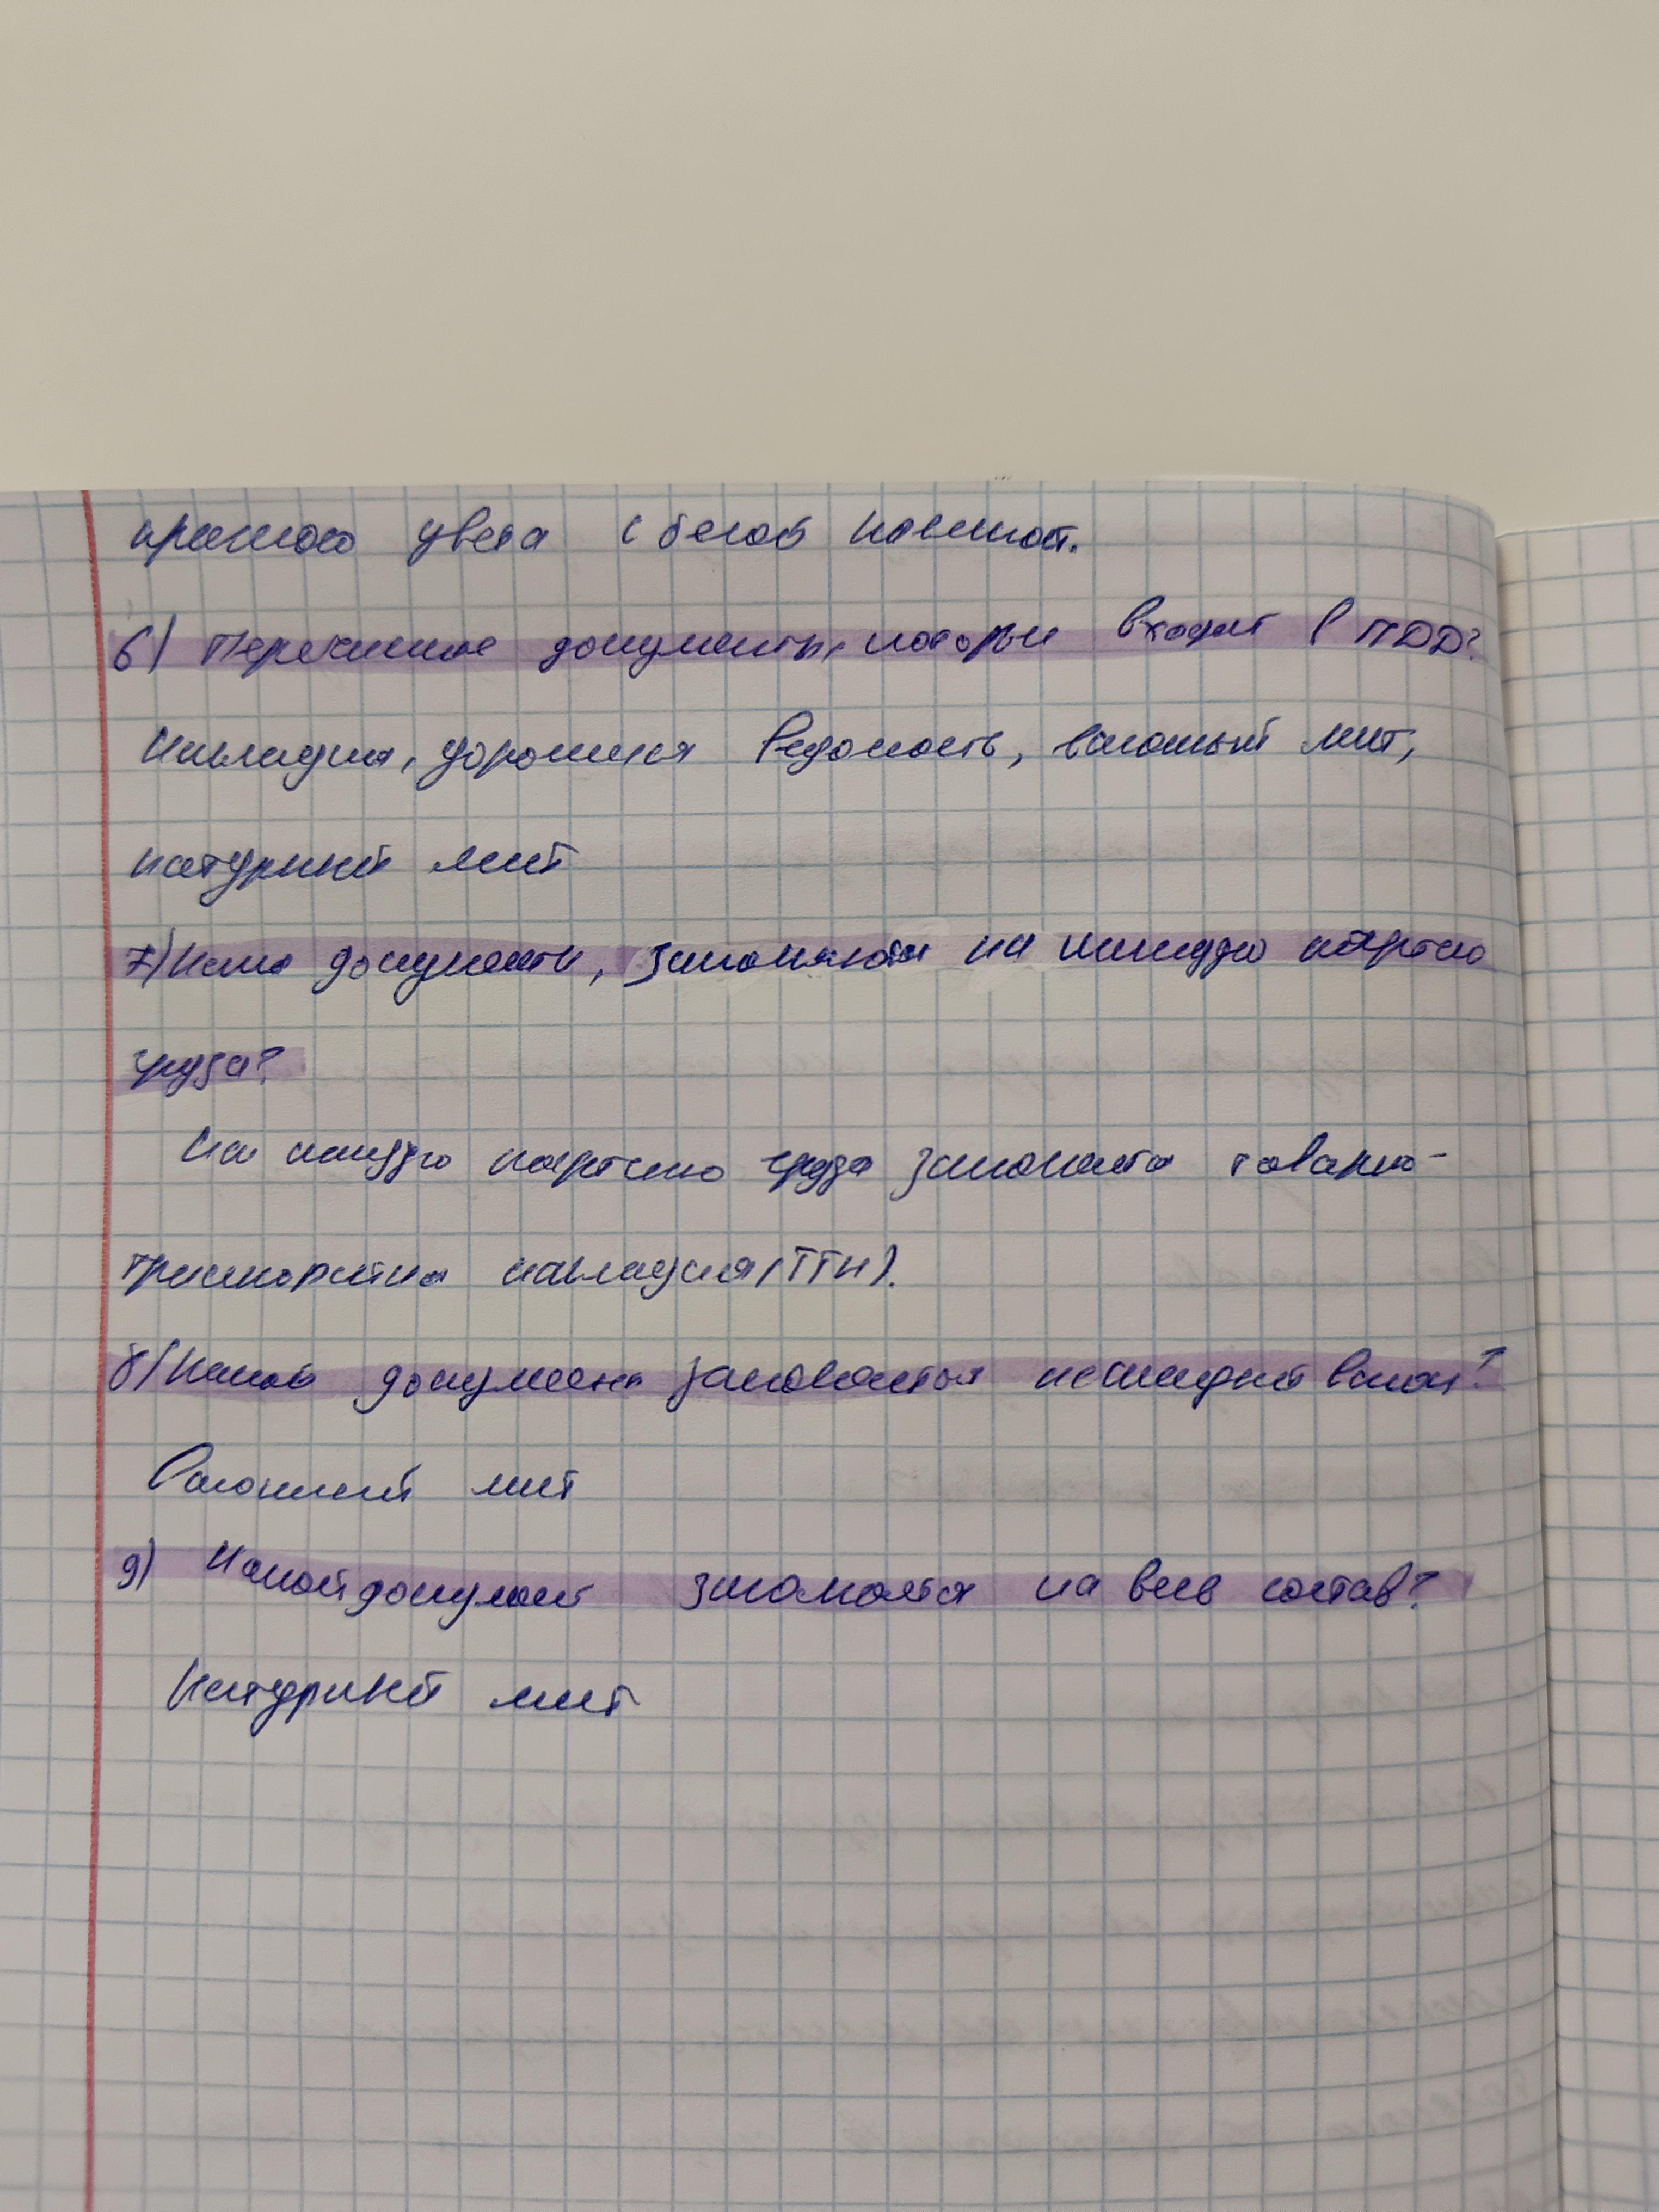 красного цвета с белой каймой.
6) Перечислите документы, которые входят в ПДД?
Накладная, дорожная ведомость, вагонный лист,
натурный лист
7) Какие документы, заполняются на каждую партию
груза?
На каждую партию груза заполняется товарно-
транспортная накладная (ТТН).
8) Какой документ заполняется на каждый вагон?
Вагонный лист
9) Какой документ заполняется на весь состав?
Натурный лист